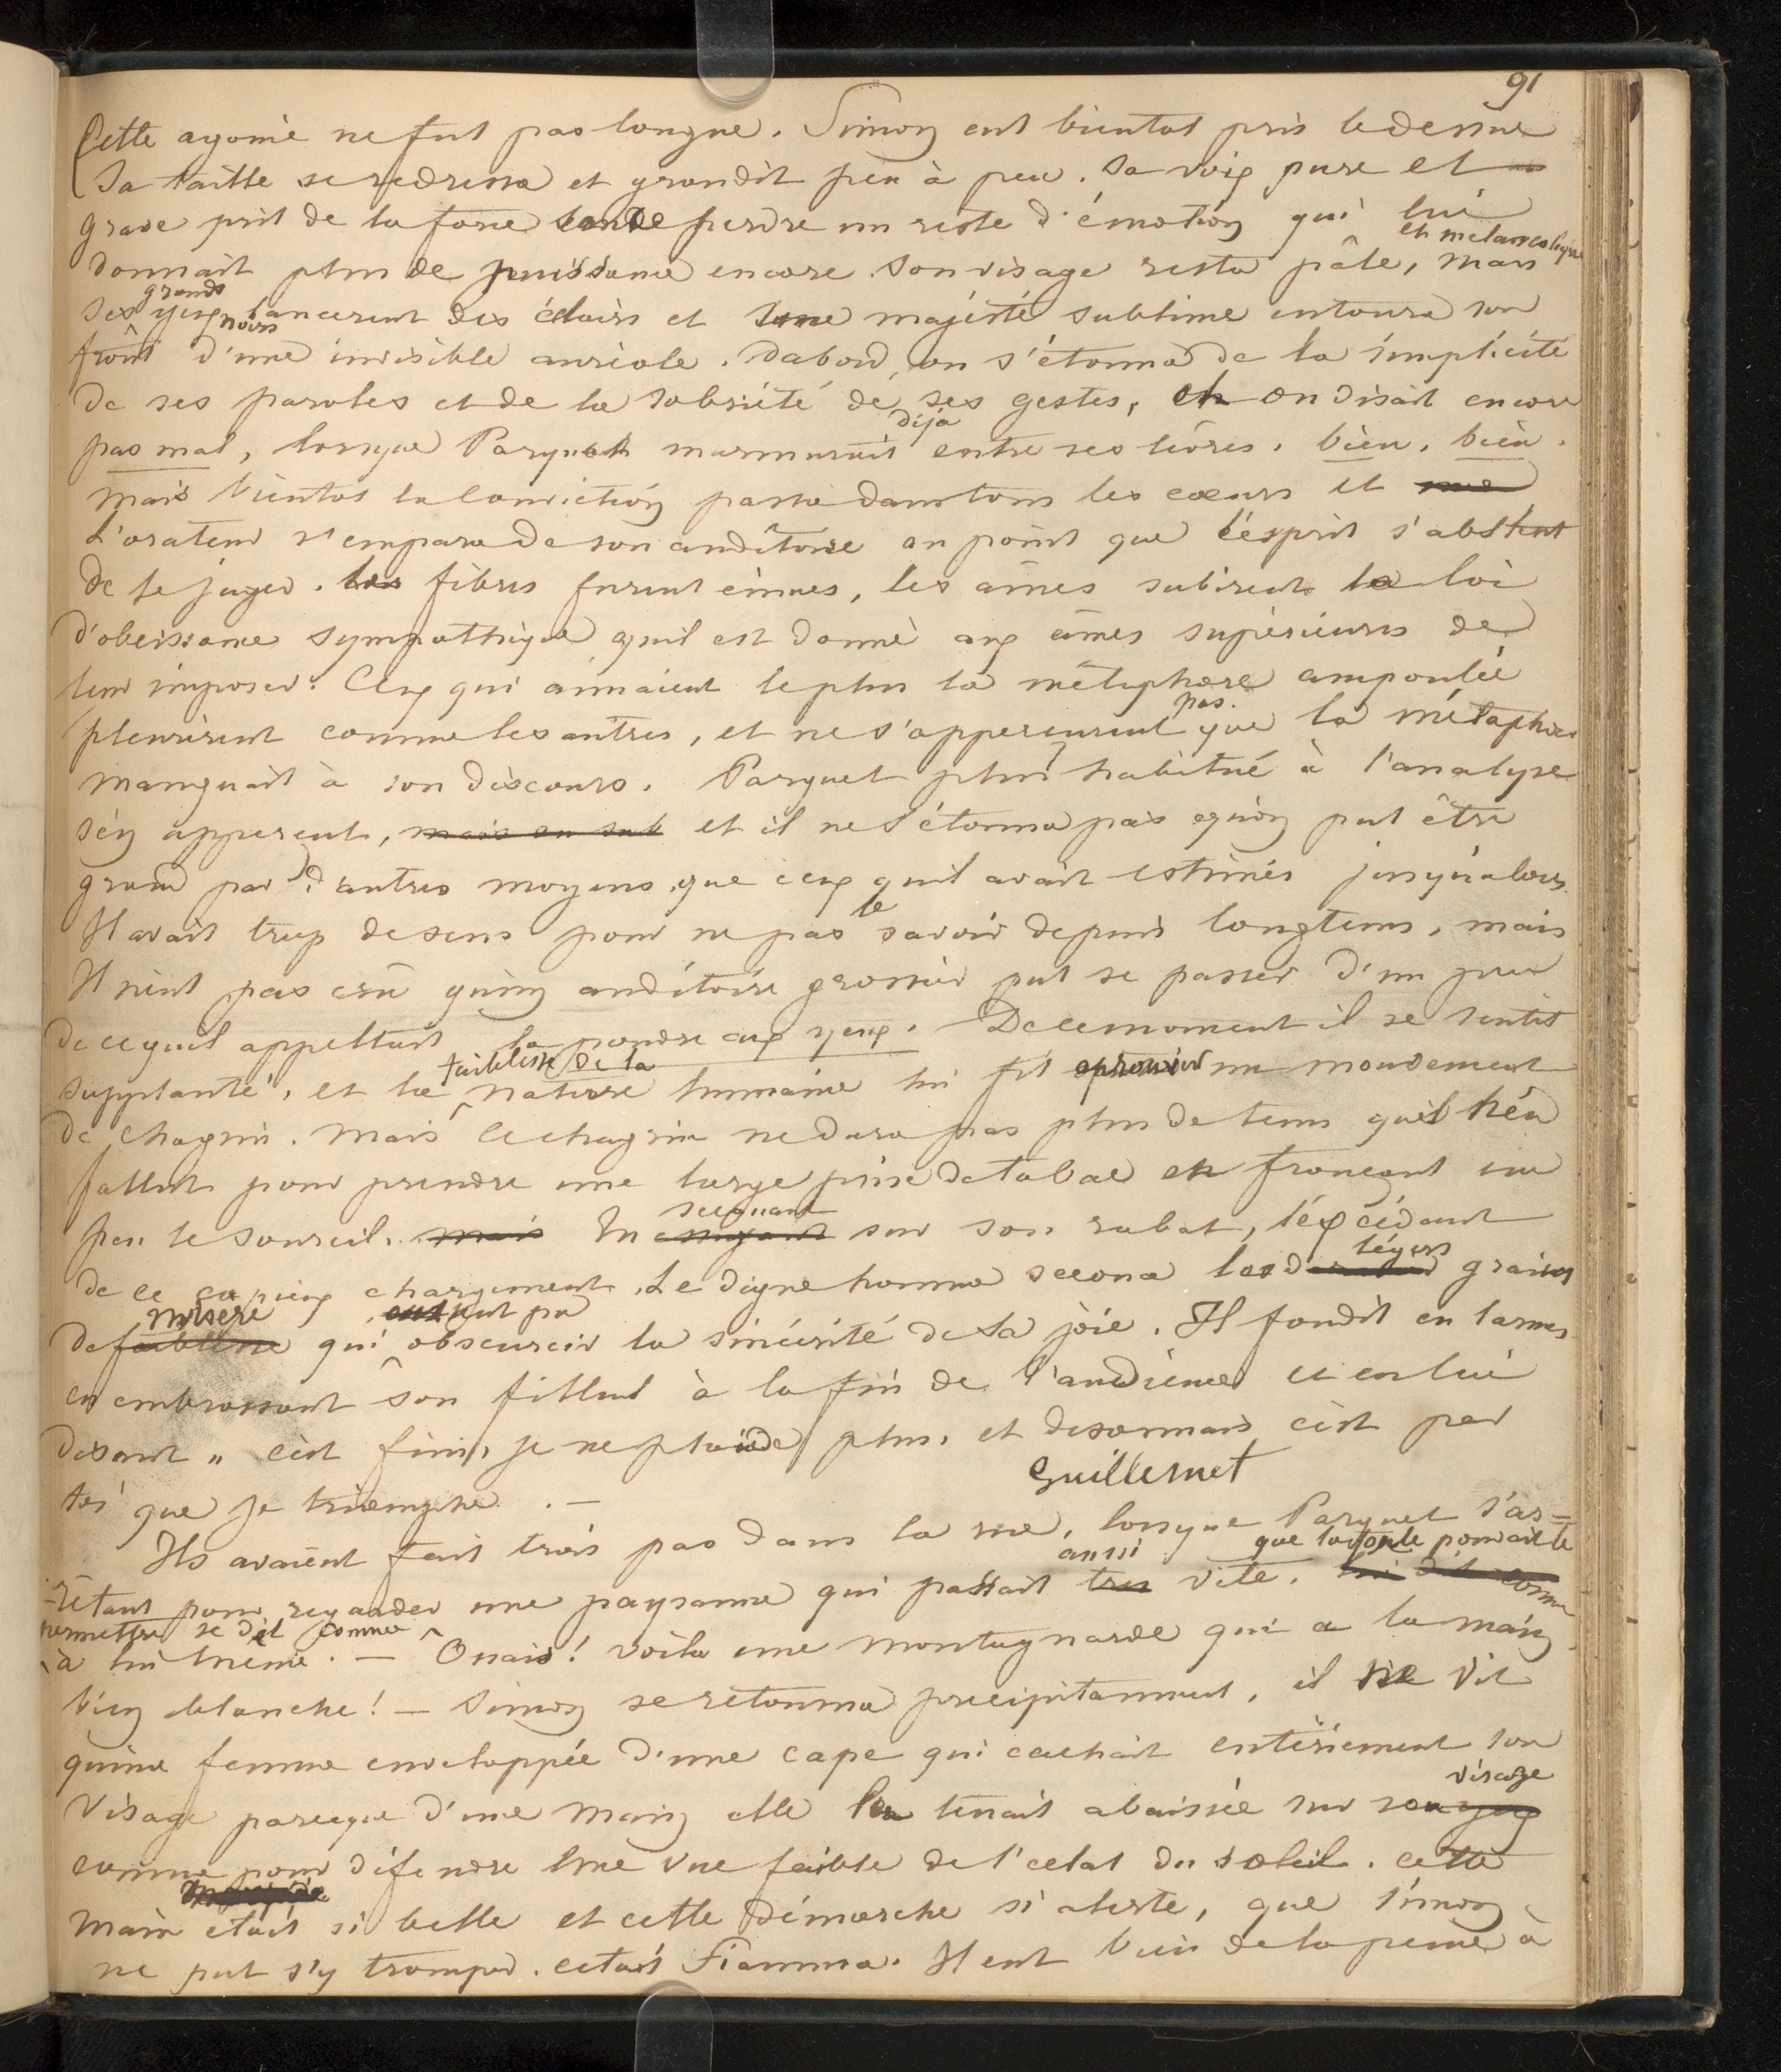 91
Cette agonie ne fut pas longue. Simon eut bientot pris le dessus
Sa taille se redressa et grandit peu à peu. Sa voix pure et
grave prit de la force sans perdre un reste d'émotion qui lui
et melancolique
donnait plus de puissance encore. Son visage resta pâle, mais
grands
ses yeux noirs lancerent des éclairs et une majesté sublime entoura son
front d'une invisible auréole. Dabord on s'étonna de la simplicité
de ses paroles et de la sobriété de ses gestes, on disait encore
déja
pas mal, lorsque Parquet murmurait entre ses lèvres. bien, bien.
Mais bientot la conviction passa dans tous les cœurs et
L'orateur s'empara de son auditoire au point que l'esprit s'abstint
de le juger. Les fibres furent émues, les âmes subirent la loi
d'obeissance sympathique qu'il est donné aux âmes supérieures de
leur imposer. Ceux qui aimaient le plus la métaphore ampoulée
pas
pleurèrent comme les autres, et ne s'apperçurent que la métaphore
manquait à son discours. Parquet plus habitué à l'analyse
s'en apperçut, mais en sub et il ne s'étonna pas qu'on put être
grand par d'autres moyens que ceux qu'il avait estimés jusqu'alors.
le
Il avait trop de sens pour ne pas savoir depuis longtems, mais
Il n'eut pas crû qu'un auditoire grossier put se passer d'un peu
de ce qu'il appellait la poudre aux yeux. De ce moment il se sentit
faiblesse de la
supplanté, et la nature humaine lui fit eprouver un mouvement
de chagrin. Mais ce chagrin ne dura pas plus de tems qu'il n'en
fallut pour prendre une large prise de tabac en fronçant un
secouant
peu le sourcil. mais En essuyant sur son rabat, l'excédant
légers
de ce copieux chargement. Le digne homme secoua les grains
misere eut pu
de faiblesse qui obscurcir la sincérité de sa joie. Il fondit en larmes
en embrassant son filleul à la fin de l'audience et en lui
disant " c'est fini, je ne plaide plus, et desormais c'est par
Guillemet
toi que je triomphe. —
Ils avaient fait trois pas dans la rue, lorsque Parquet s'ar-
aussi que la foule pouvait le
-rêtant pour regarder une paysanne qui passait tres vite. lui dit comme
permettre se dit comme
à lui même. — Ouais! voila une montagnarde qui a la main
bien blanche! — Simon se retourna precipitamment, il ne vit
qu'une femme enveloppée d'une cape qui cachait entièrement son
visage
visage parceque d'une main elle la tenait abaissée sur son yeux
comme pour défendre une vue faible de l'eclat du soleil. cette
main etait si belle et cette démarche si alerte, que Simon
ne put s'y tromper. cetait Fiamma. Il eut bien de la peine à